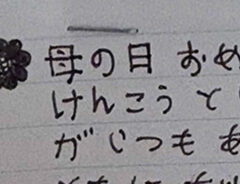 母の日 おめ
けんこうと
がじつもあ